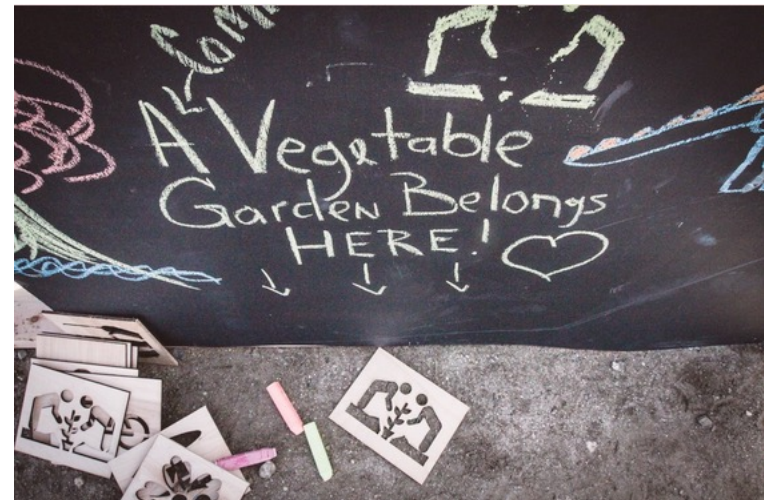 A Vegetable
Garden Belongs
HERE!